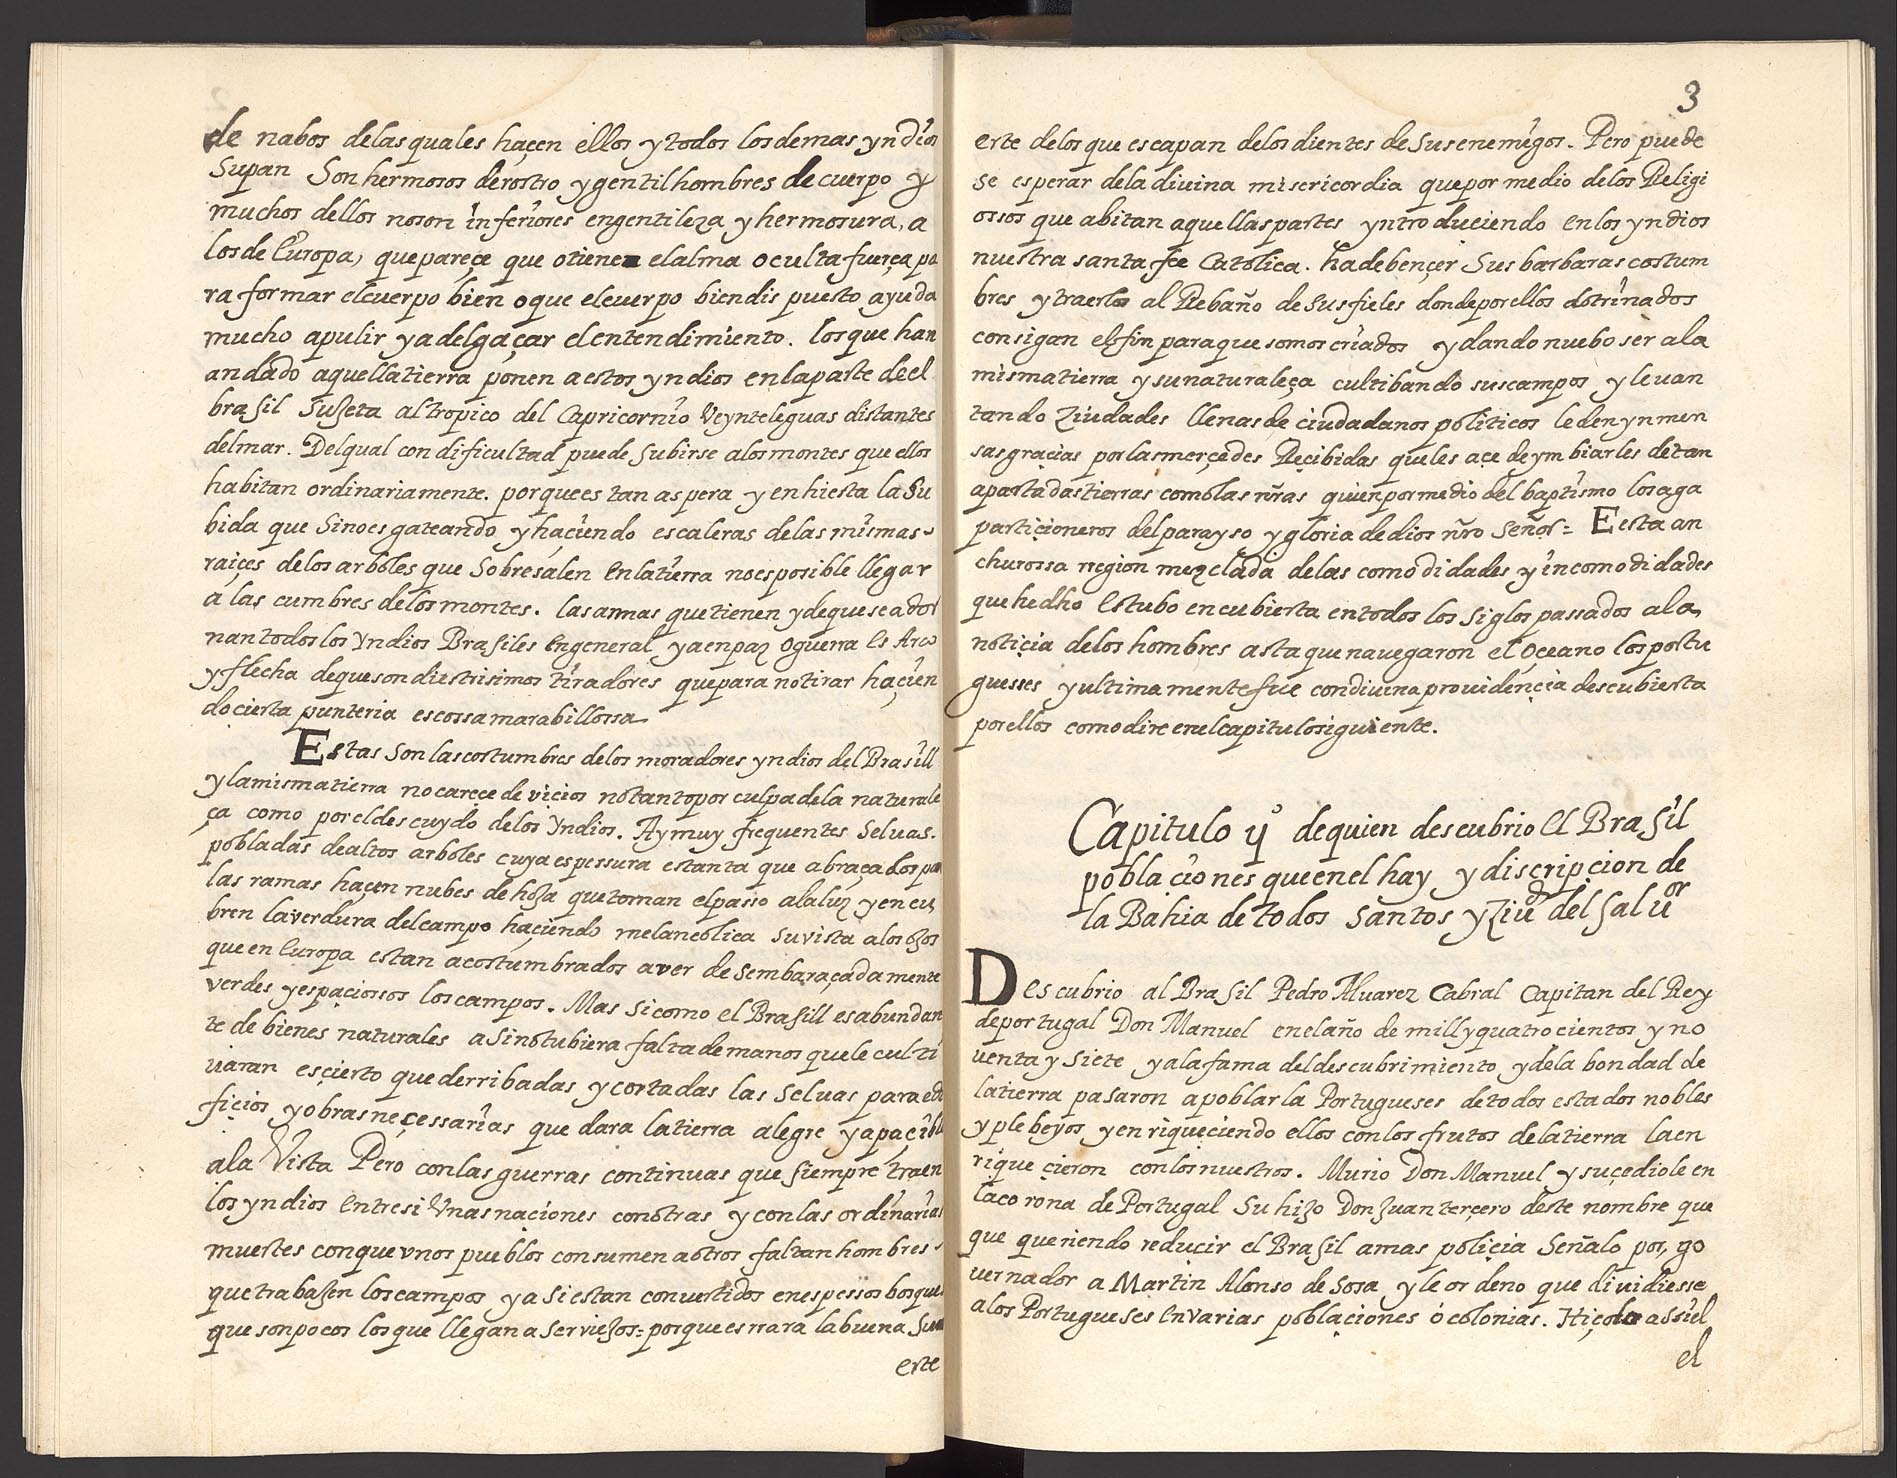 de nabos delas quales haçen ellos y todos los demas yndios
Supan Son hermosos de rostro y gentil hombres de cuerpo y
muchos dellos no son inferiores en gentileza y hermosura, a
los de Europa, que pareçe que o tiene el alma oculta fuerça pa
ra formar el cuerpo bien o que el cuerpo bien dis puesto ayuda
mucho apulir y adelgaçar el entendimiento. los que han
andado aquella tierra ponen a estos yndios en la parte de el
brasil Sugeta al tropico del Capricornio Veynte leguas distantes
del mar. Del qual con dificultad puede subirse a los montes que ellos
habitan ordinariamente. porque es tan aspera y enhiesta la Su
bida que Sino es gateando y haçiendo escaleras de las mismas
raiçes de los arboles que Sobresalen En la tierra no es posible llegar
a las cumbres de los montes. las armas que tienen y de que se ador
nan todos los Yndios Brasiles En general ya en paz o guerra Es Arco
y flecha de que son diestrisimos tiradores que para no tirar haçien
do cierta punteria es cossa marabillossa
Estas Son las costumbres de los moradores yndios del Brasill
y la misma tierra no careçe de viçios no tanto por culpa de la naturale
ça como por el descuydo de los Yndios. Ay muy frequentes Seluas.
pobladas de altos arboles cuya espessura es tanta que abraçados por
las ramas haçen nubes de hoja que toman el passo a la luz y encu
bren la verdura del campo haçiendo melancolica su vista a los ojos
que en Europa estan acostumbrados a ver desembaraçadamente
verdes y espaçiossos los campos. Mas Si como el Brasill es abundan
te de bienes naturales a Si no tubiera falta de manos que le culti
uaran es çierto que derribadas y cortadas las Seluas para edi
fiçios y obras neçessarias que dara la tierra alegre y apaçible
a la Vista Pero con las guerras continuas que siempre traen
los yndios Entre si Vnas naciones con otras y con las ordinarias
muertes con que vnos pueblos consumen a otros faltan hombres
que trabagen los campos y a Si estan convertidos en espessos bosques
que son pocos los que llegan a Ser viejos = porque es rara la buena Su
erte
3
erte de los que escapan de los dientes de Sus enemigos. Pero puede
se esperar de la diuina misericordia que por medio de los Religi
ossos que abitan aquellas partes yntroduciendo en los yndios
nuestra santa fee Catolica. ha de bençer Sus barbaras costum
bres y traerlos al Rebaño de Sus fieles donde por ellos dotrinados
consigan el fin para que somos criados y dando nuebo ser a la
misma tierra y su naturaleça cultibando sus campos y leuan
tando Ziudades llenas de ciudadanos politicos le den ynmen
sas graçias por las merçedes Reçibidas que les açe de ymbiarles de tan
apartadas tierras como las nr̃as quien por medio del baptismo los aga
partiçioneros del parayso y gloria de dios nr̃o Señor = Eesta an
churossa rregion mezclada de las comodidades y incomodidades
que he dho Estubo encubierta en todos los Siglos passados a la
notiçia de los hombres asta que nauegaron el Oçeano los portu
guesses y ultimamente fue con diuina prouidençia descubierta
por ellos como dire en el capitulo siguiente.
Capitulo ij° de quien descubrio El Brasil
poblaçiones que en el hay y discripçion de
la Bahia de todos santos y Ziud del Saluor
Descubrio al Brasil Pedro Aluarez Cabral Capitan del Rey
de portugal Don Manuel en el año de mill y quatrocientos y no
uenta y Siete y a la fama del descubrimiento y de la bondad de
la tierra pasaron a poblar la Portugueses de todos estados nobles
y plebeyos y enriqueciendo ellos con los frutos de la tierra la en
riquecieron con los nuestros. Murio Don Manuel y suçediole en
la corona de Portugal Su hijo Don Juan terçero deste nombre que
que queriendo reducir el Brasil a mas poliçia Señalo por, go
uernador a Martin Alonso de Sosa y le ordeno que diuidiesse
a los Portugueses En varias poblaçiones ó colonias. Hiçolo assi el
el